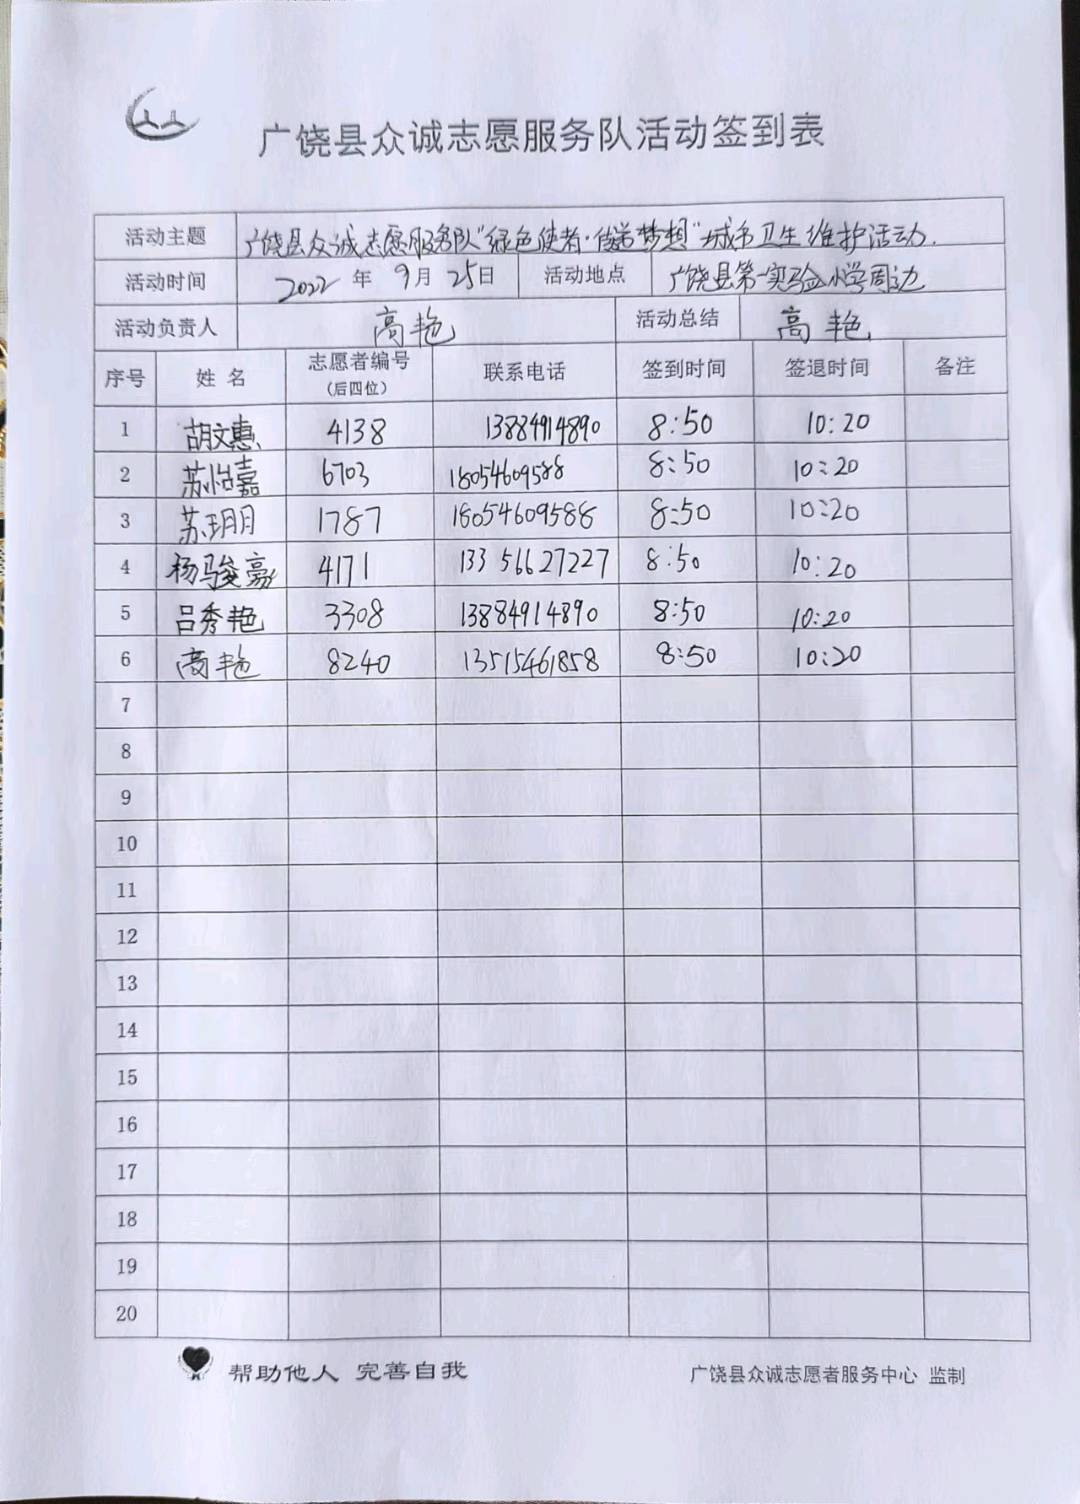 广饶县众诚志愿服务队活动签到表
活动主题 广饶县众诚志愿服务队"绿色使者·传递梦想"城市卫生维护活动.
活动时间 2022 年 9 月 25 日 活动地点 广饶县第一实验小学周边
活动负责人 高艳 活动总结 高艳
序号 姓名 志愿者编号 (后四位) 联系电话 签到时间 签退时间 备注
1 胡文惠 4138 13884914890 8:50 10:20
2 苏怡嘉 6703 18054609588 8:50 10:20
3 苏玥月 1787 18054609588 8:50 10:20
4 杨骏豪 4171 13356627227 8:50 10:20
5 吕秀艳 3308 13884914890 8:50 10:20
6 高艳 8240 13515461858 8:50 10:20
7
8
9
10
11
12
13
14
15
16
17
18
19
20
帮助他人 完善自我 广饶县众诚志愿者服务中心 监制